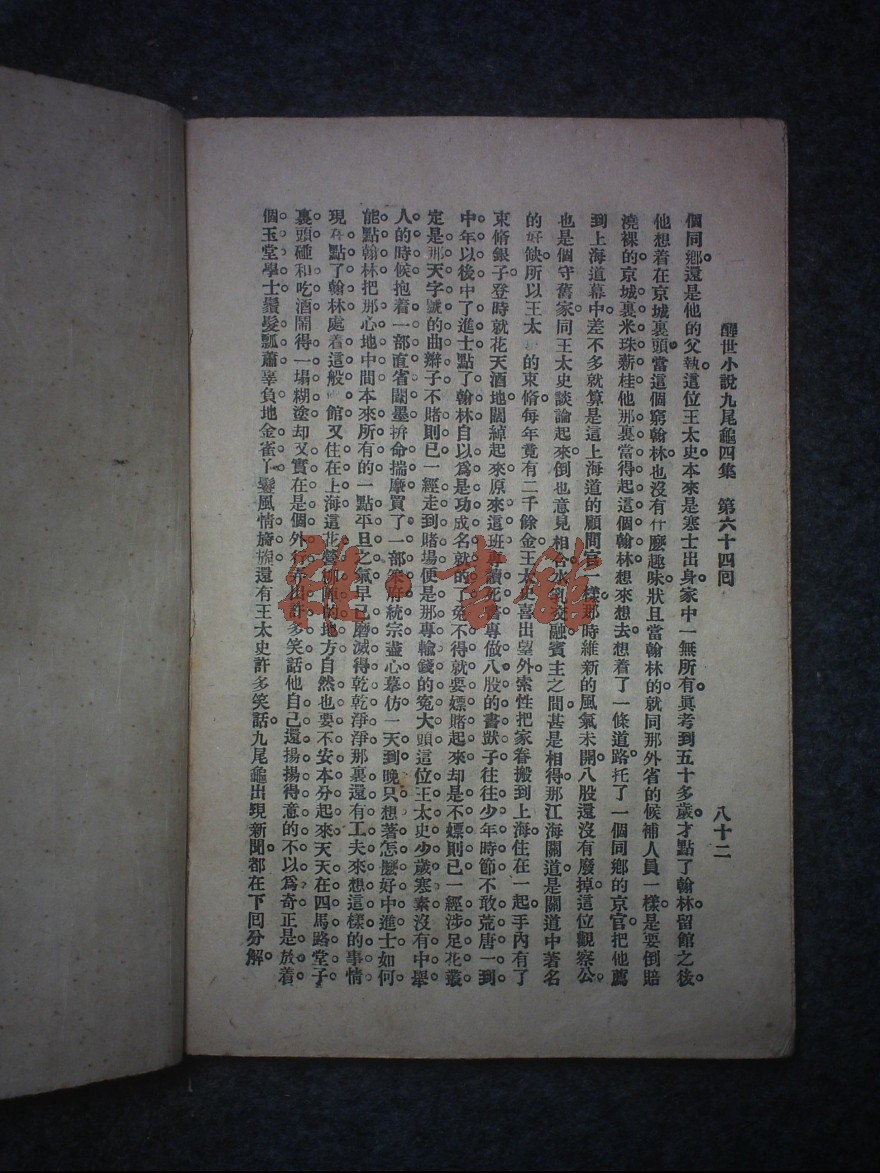 醒世小說九尾龜四集　第六十四回　八十二
個同鄉還是他的父執。這位王太史本來是寒士出身家中一無所有。真考到五十多歲才點了翰林留館之後。
他想着在京城裏頭當這個窮翰林也沒有什麼趣味狀且當翰林的就同那外省的候補人員一樣。是要倒賠
澆裸的京城裏米珠薪桂他那裏當得起這個翰林想來想去想着了一條道路托了一個同鄉的京官把他薦
到上海道幕中。差不多就算是這上海道的顧問官一樣。那時維新的風氣未開八股還沒有廢掉。這位觀察公。
也是個守舊家。同王太史談論起來倒也意見相合水乳交融賓主之間甚是相得。那江海關道是關道中著名
的好缺所以王太 的束脩每年竟有二千餘金。王太史喜出望外。索性把家眷搬到上海住在一起。手內有了
束脩銀子。登時就花天酒地闊綽起來。原來這班專讀死書專做八股的書獃子。往往少年時節不敢荒唐一到
中年以後中了進士點了翰林。自以爲是功成名就的了。免不得就要嫖賭起來却是不嫖則已一經涉足花叢
定是那天字號的曲辮子。不賭則已一經走到賭場便是那專輸錢的冤大頭這位王太史少歲寒素沒有中舉
人。的時候抱着一部直省闈墨拚命揣摩買了一部 統宗盡心摹仿一天到晚。只想著怎麽好中進士如何
能點翰林把那心地中間本來所有的一點平旦之氣早已磨滅得乾乾淨淨那裏還有工夫來想這樣的事情
現 點了翰林處着這般 館又住在上海這花營 的地方自然也要不安本分起來。天天在四馬路堂子
裏頭碰和吃酒鬧得一塌糊塗却又實在是個外行弄出許多笑話他自己還揚揚得意的不以爲奇正是放着
個玉堂學士鬢髮瓢蕭辜負地金雀丫鬟風情旖旎還有王太史許多笑話。九尾龜出現新聞都在下回分解。
雜·書館